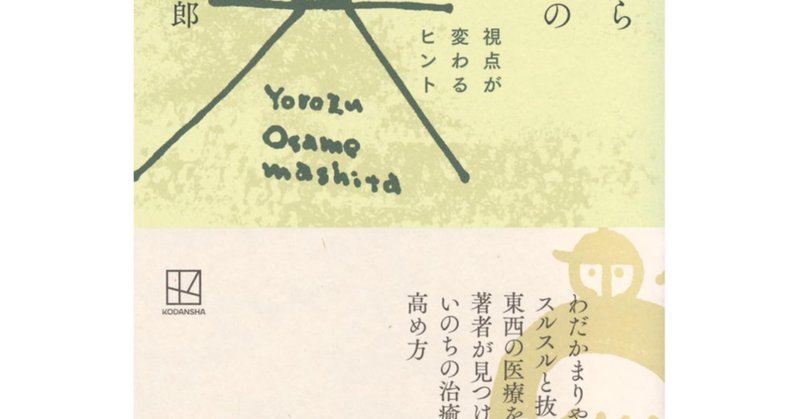 ら
の
郎
視点が
変わる
ヒント
Yorozu
Osame
mashita
KODANSHA
わだかまりや
スルスルと抜
東西の医療を
著者が見つけ
いのちの治癒
高め方